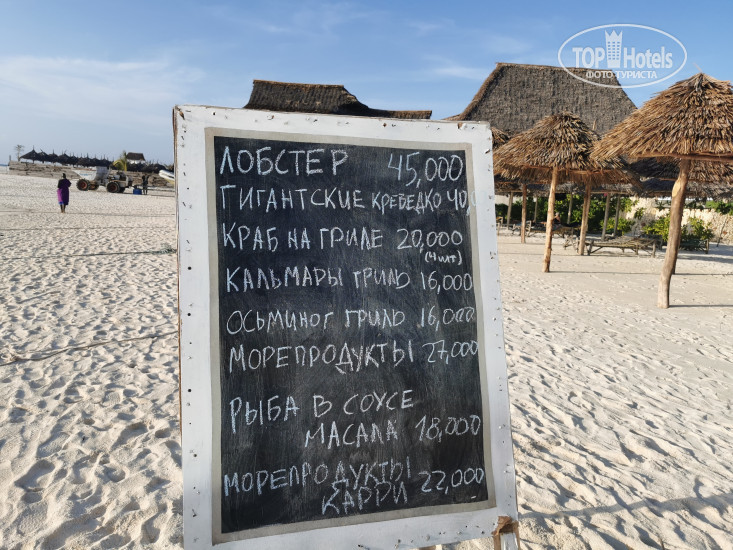 TOP Hotels
ФОТО ТУРИСТА
ЛОБСТЕР 45,000
ГИГАНТСКИЕ КРЕВЕДКО 40,
КРАБ НА ГРИЛЕ 20,000
(4 шт)
КАЛЬМАРЫ ГРИЛЬ 16,000
ОСЬМИНОГ ГРИЛЬ 16,000
МОРЕПРОДУКТЫ 27,000
РЫБА В СОУСЕ
МАСАЛА 18,000
МОРЕПРОДУКТЫ
КАРРИ 22,000